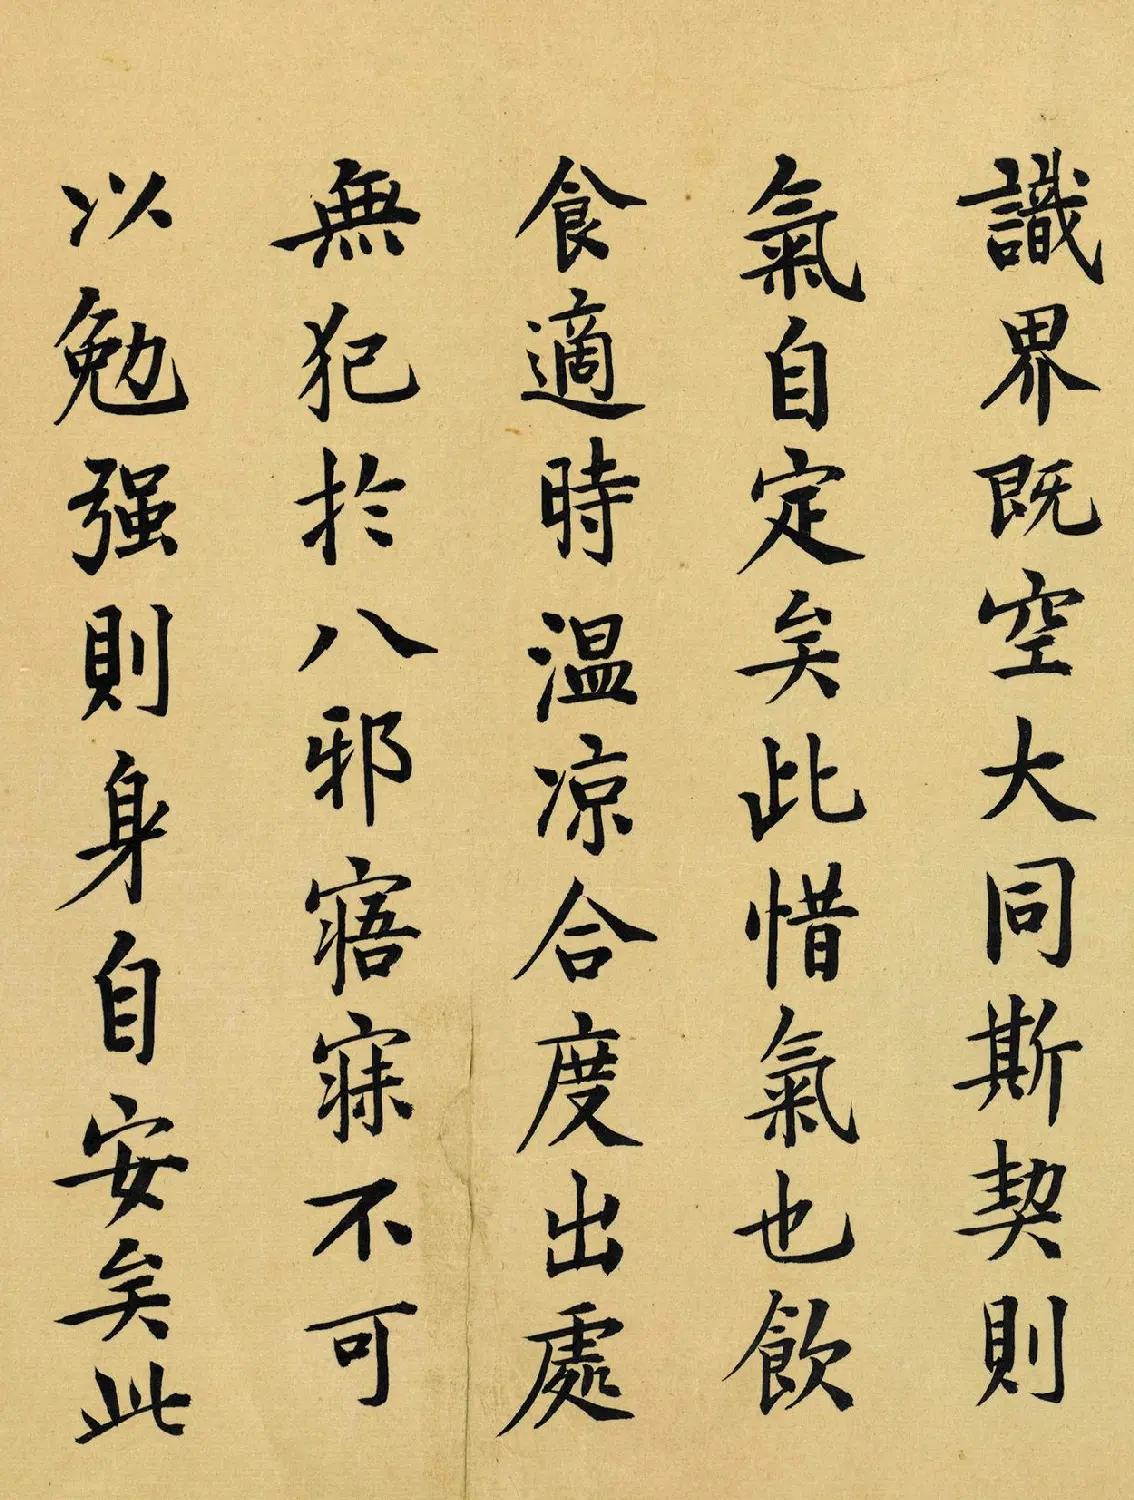 識界既空大同斯契則
氣自定矣此惜氣也飲
食適時温凉合度出處
無犯於八邪寤寐不可
以勉强則身自安矣此